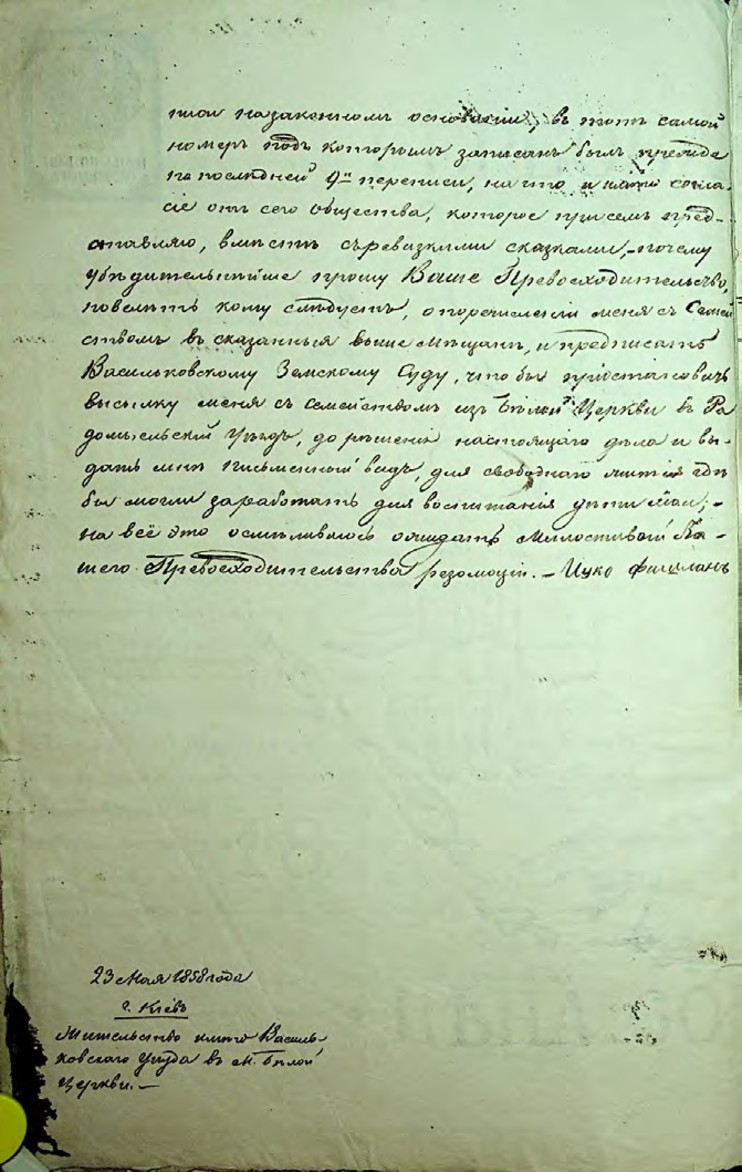 на законном основаніи, въ тотъ самой
номеръ подъ которымъ записанъ былъ прежде
по последней 9й переписи, на что и имею согла-
сіе отъ сего общества, которое при семъ пред-
ставляю, вместе съ ревизкими сказками, – почему
убедительнейше прошу Ваше Превосходительство,
повелеть кому следуетъ, о перечисленіи меня съ Семей
ствомъ въ сказанныя выше мещане, и предписать
Васильковскому Земскому Суду, что бы пріостановить
высылку меня съ Семействомъ изъ Белой Церкви въ Ра
домысльскій Уездъ, до решенія настоящаго дела и вы-
дать мне письменный видъ, для свободнаго житія где
бы могли заработать для воспитанія дети мои; –
на всё это осмеливаюсь ожидать Милостивой Ва-
шего Превосходительства резолюціи. –
23 Мая 1858 года
г. Кіевъ
Жительство имею Василь-
ковскаго уезда въ м. Белой
Церкви. –